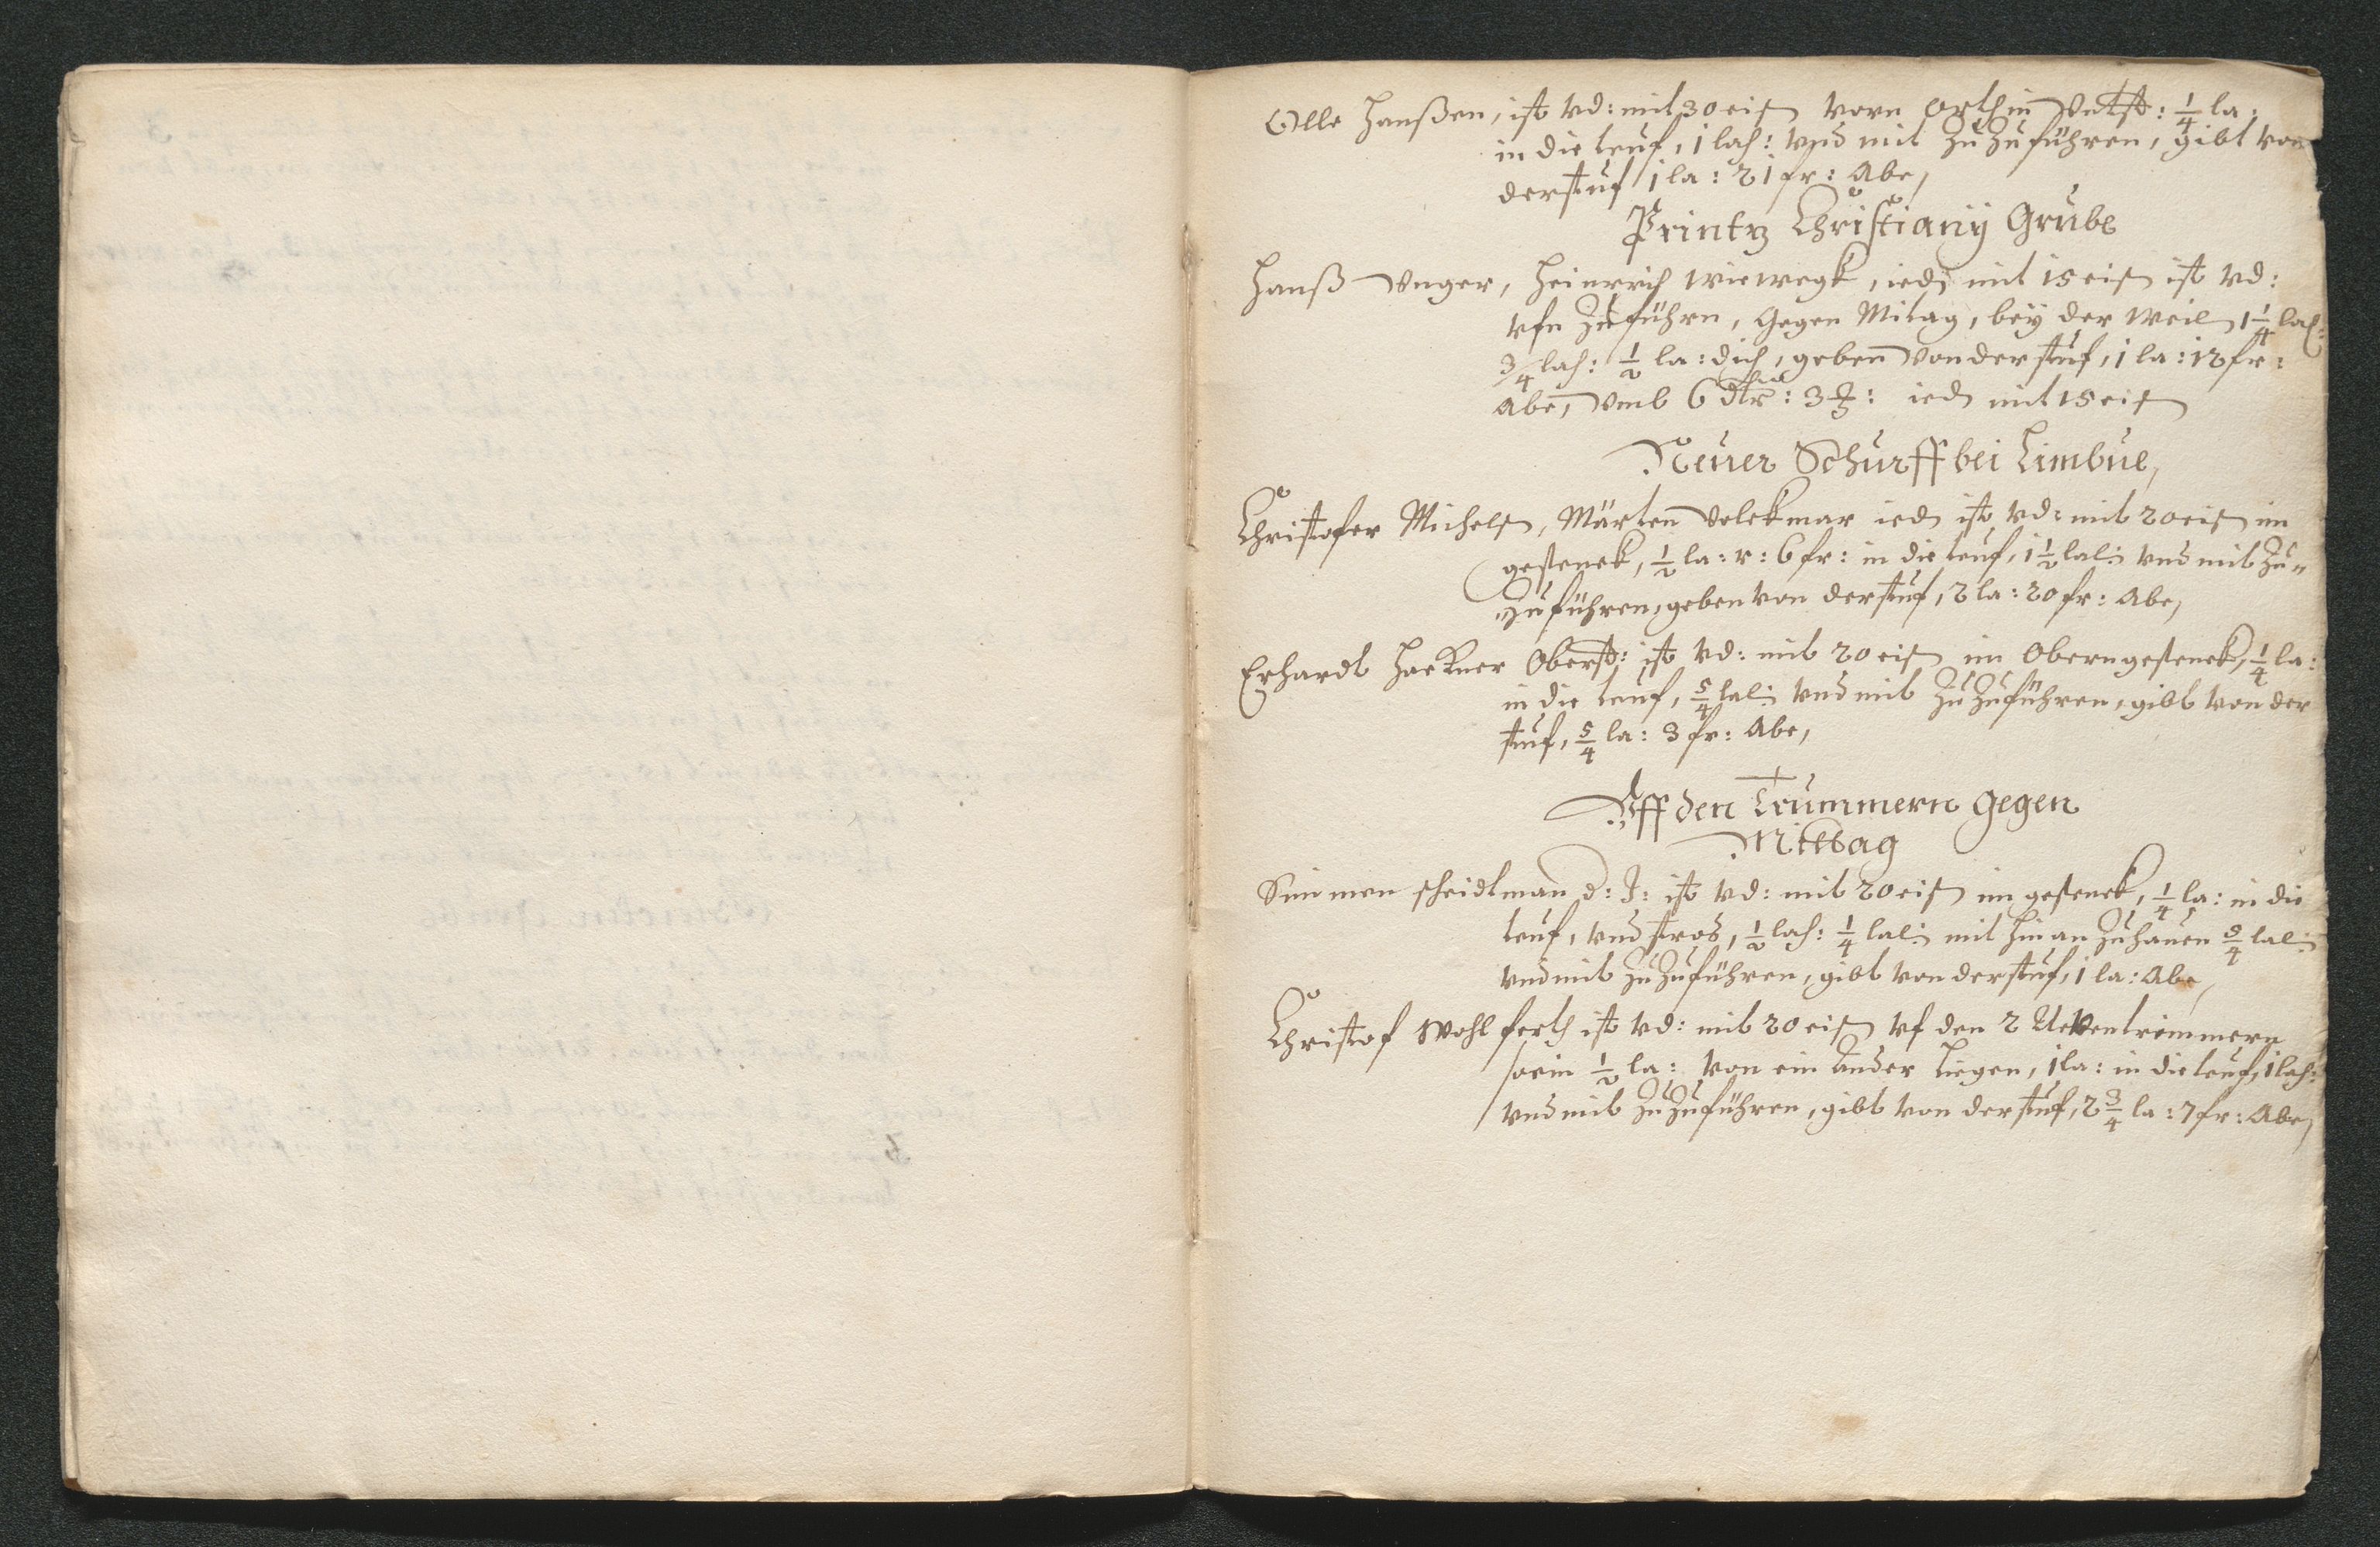 Olle Hanßen, ist vd: mit 30 eis vorn orth in Vntst: 1/4 la:
in die teuf, 1 lah: vnd mit Zu Zuführen, gibt von
der stuf 1 la: 21 fr: Abe,
Printz Christiany Grube
Hanß Vnger, Heinrich Wiewegk, ied mit 15 eis ist vd:
vfn Zuführn, Gegen Mitag, bey der Weil 1 1/4 lah:
3/4 lah: 1/2 la: dich, geben von der stuf, 1 la: 12 fr:
Abe, Vmb 6 dlr: 3 ied mit 15 eis
Neuer Schurff bei Limbue,
Christofer Michels, Märten Volckmar ied ist vd: mit 20 eis im
gesenck, 1/2 la: r: 6 fr: in die teuf, 1 1/2 lal: vnd mit Zu„
„Zuführen, geben von der stuf, 2 la: 20 fr: Abe,
Erhardt Hackner Oberst: ist vd: mit 20 eis im Obern gesenck, 1/4 la:
in die teuf, 5/4 lal: vnd mit Zu Zuführen, gibt von der
stuf, 5/4 la: 3 fr: Abe,
Vff den Trummern gegen
Mittag
Simmen scheidtman d: J: ist vd: mit 20 eis im gesenck, 1/4 la: in die
teuf, vnd stros, 1/2 lah: 1/4 lal: mit hin an Zuhauen 5/4 lal:
vnd mit Zu Zuführen, gibt von der stuf, 1 la: Abe,
Christof Wohlferth ist vd: mit 20 eis vf den 2 trimmern
so ein 1/2 la: von ein ander Liegen, 1 la: in die teuf, 1 lah:
vnd mit Zu Zuführen, gibt von der stuf, 2 3/4 la: 7 fr: Abe,